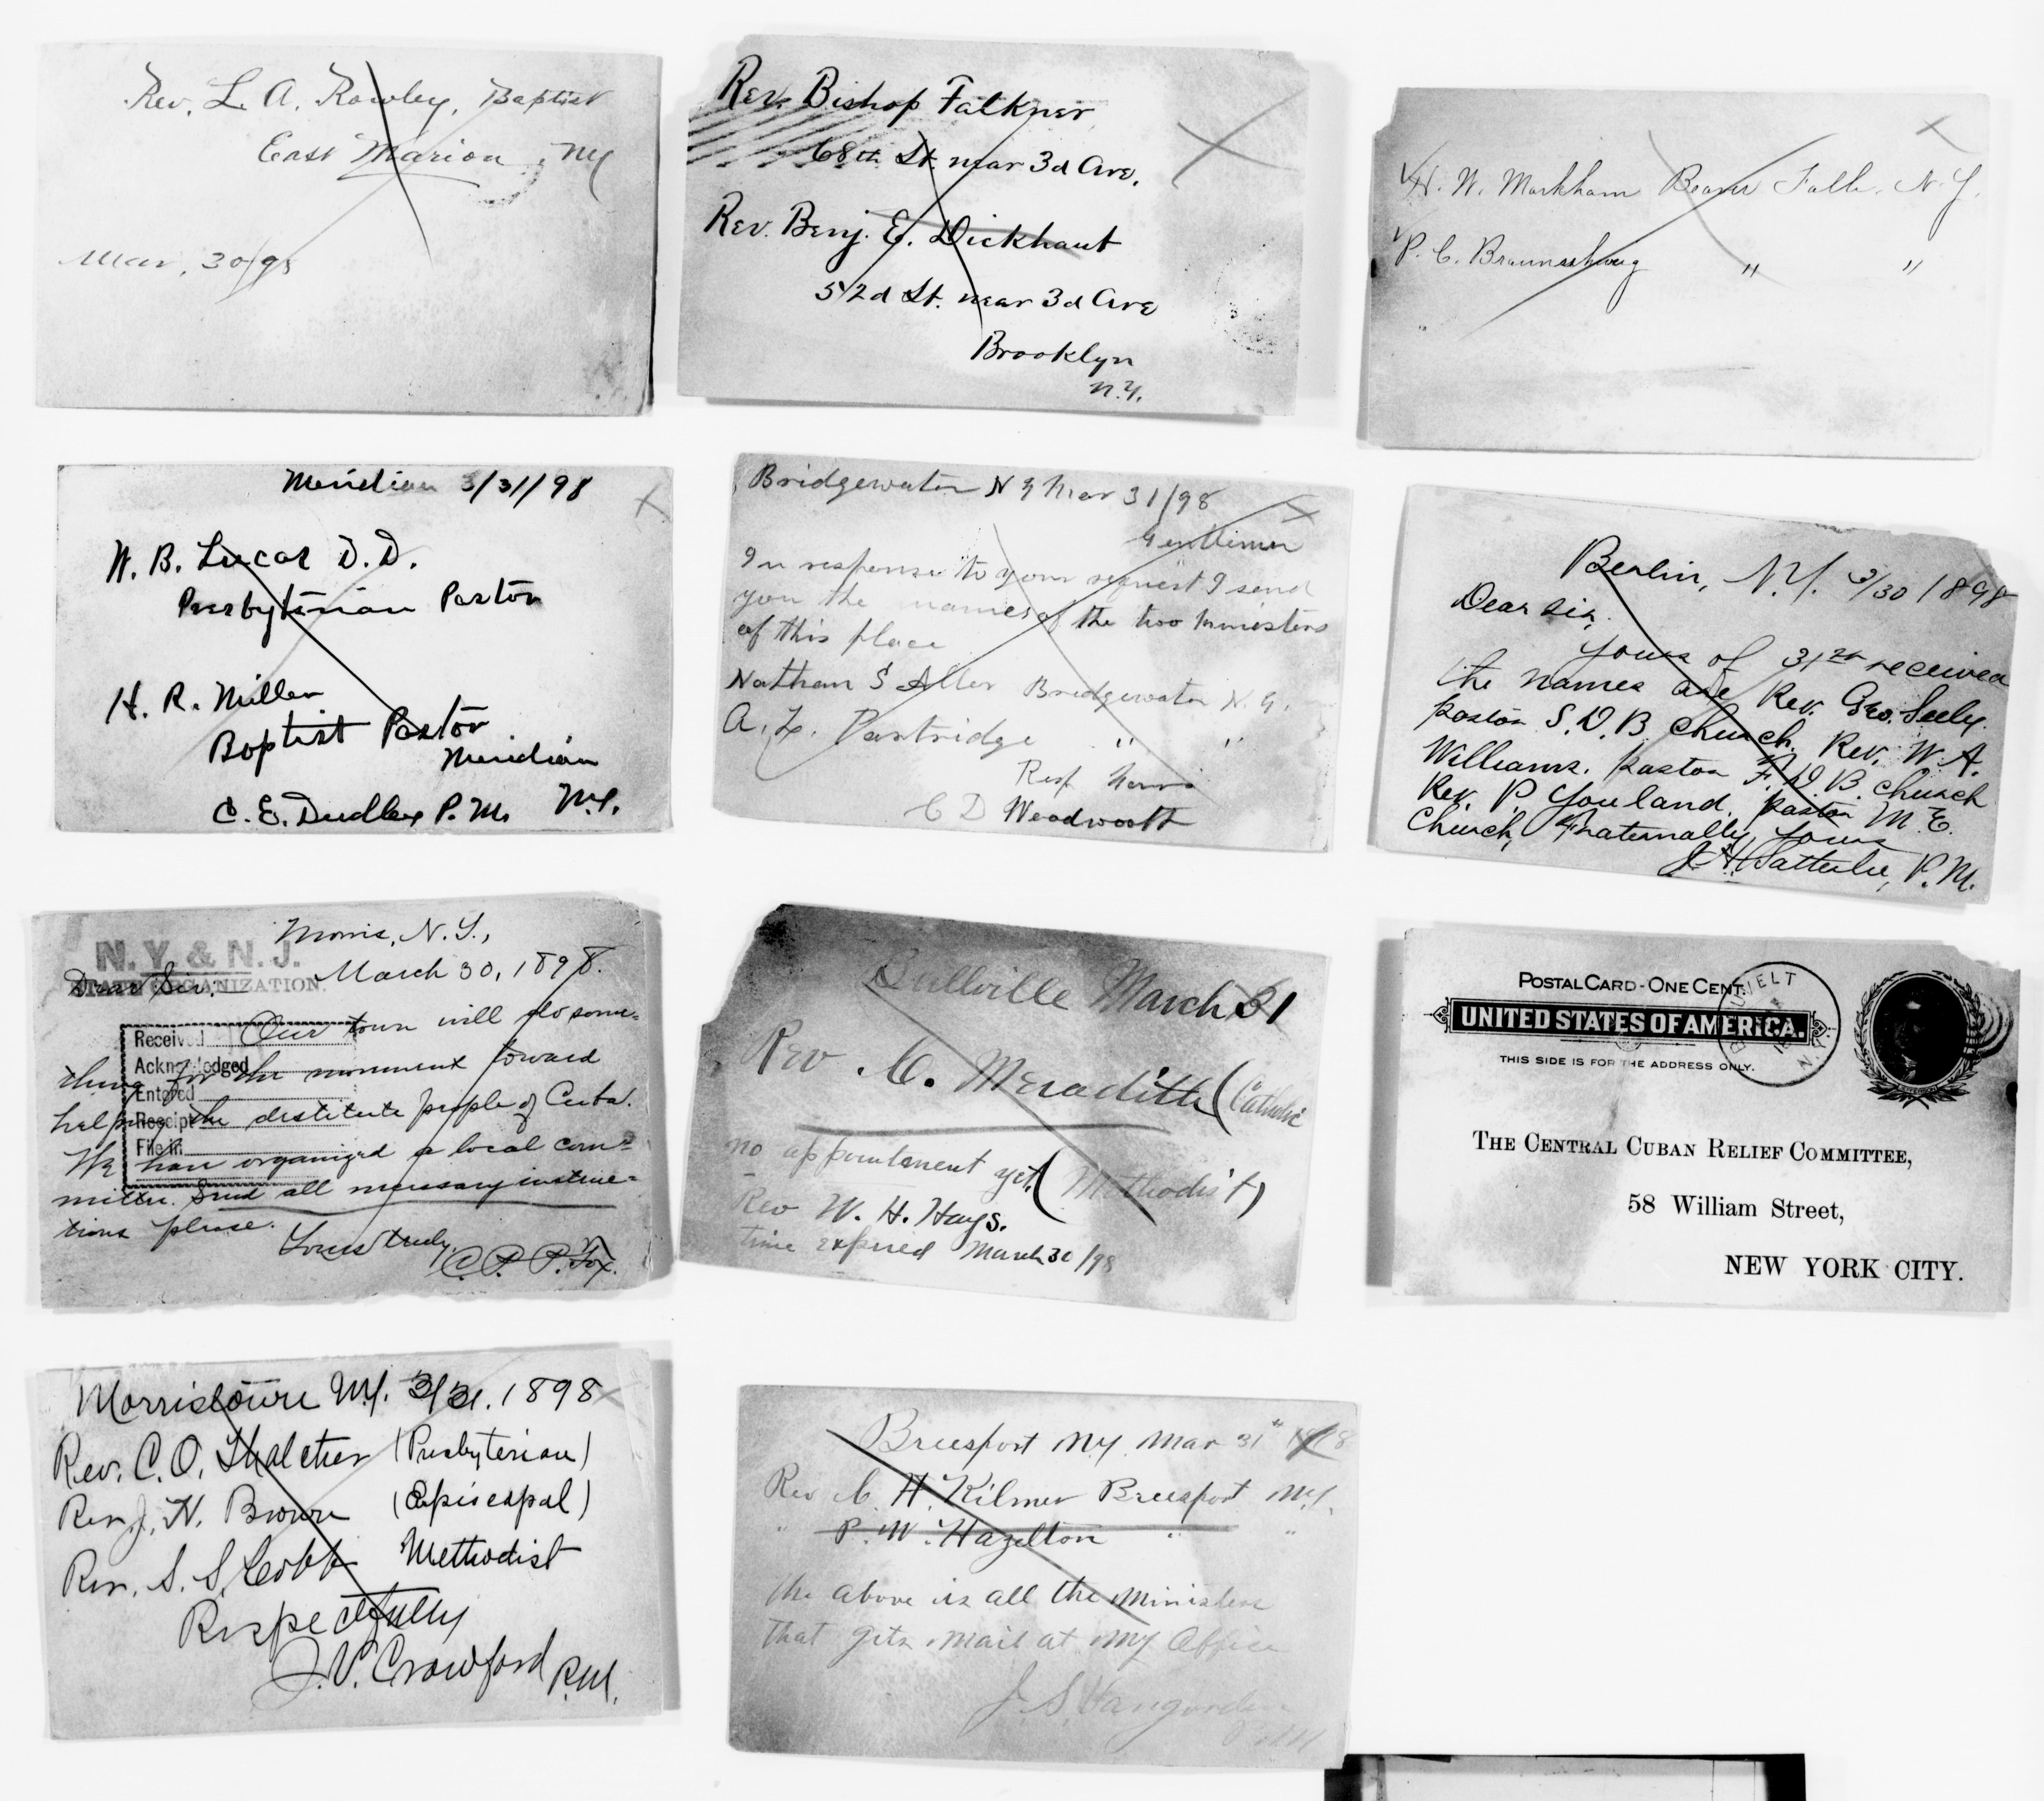 Rev. L. A. Rowley, Baptist
East Marion, NY
Mar, 30/98
Rev. Bishop Falkner
68th St. near 3d Ave.
Rev. Benj. E. Dickhaut
52d St. near 3d Ave
Brooklyn
N.Y.
H. W. Markham Beaver Falls, N.Y.
P. C. Braunschweig " "
Meridian 3/31/98
W. B. Lucas D.D.
Presbyterian Pastor
H. R. Miller
Baptist Pastor
Meridian
C. E. Dudley P.M. N.Y.
Bridgewater N Y Mar 31/98
Gentlemen
In response to your request I send
you the names of the two ministers
of this place
Nathan S Aller Bridgewater N.Y.
A. L. Partridge " "
Resp yours
C D Woodworth
Berlin, N.Y. 3/30 1898
Dear Sir,
Yours of 31st received
the names are Rev. Geo. Seely.
pastor S.D.B. Church. Rev. W. A.
Williams. pastor F. D. B. Church
Rev. P. Youland. pastor M.E.
Church, Fraternally Yours
J. H. Satterlee, P.M.
N.Y. & N.J.
STATE ORGANIZATION.
Morris, N.Y.,
March 30, 1898.
Dear Sir:
Our town will do some-
thing for the movement toward
helping the destitute people of Cuba.
We have organized a local com-
mittee. Send all necessary instruc-
tions please.
Yours truly,
C. P. P. Fox.
Received
Acknowledged
Entered
Receipt
File in
Bullville March 31
Rev. C. Meraditte (Catholic
no appointment yet (Methodist)
Rev W. H. Hays.
time expired March 30/98
POSTAL CARD - ONE CENT.
UNITED STATES OF AMERICA.
THIS SIDE IS FOR THE ADDRESS ONLY.
N.Y.
THE CENTRAL CUBAN RELIEF COMMITTEE,
58 William Street,
NEW YORK CITY.
Morristown N.Y. 3/31. 1898
Rev. C. O. Thatcher (Presbyterian)
Rev. J. N. Brown (Episcopal)
Rev. S. S. Cobb Methodist
Respectfully
J. V. Crawford P.M.
Breesport NY. Mar 31" 1898
Rev C. H. Kilmer Breesport N.Y.
" P. W. Hazelton " "
the above is all the ministers
that gets mail at my Office
J. S. Vangorder
P.M